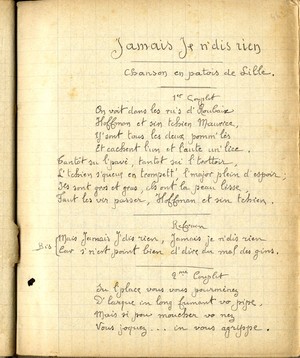 Jamais Je n'dis rien
Chanson en patois de Lille.
1er Couplet
On voit dans les ru's d'Roubaix
Hoffman et sin tchien Maurice,
Y sont tous les deux pomm'lés
Et cachent l'un et l'aute un' lice.
Tantôt su l'pavé, tantôt su l'trottoir,
L'tchien s'queue en trompett', l'major plein d'espoir;
Ils sont gros et gras, ils ont la peau lisse,
Faut les vir passer, Hoffman et sin tchien.
Refrain
Bis
Mais Jamais J'dis rien, Jamais je n'dis rien
Car s'n'est point bien d'dire du mal des gins.
2ème Couplet
Su l'place vous vous pourménez
D'larque in long fumant vo pipe,
Mais si pou moucher vo nez
Vous joquez... in vous agrippe.